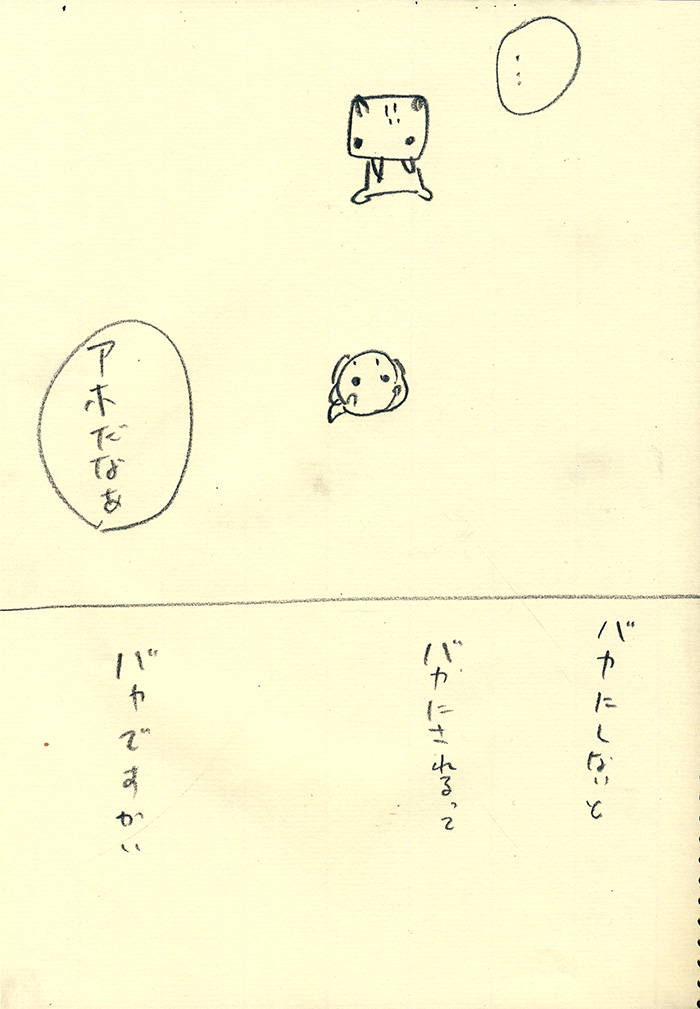 …
アホだなぁ
バカにしないと
バカにされるって
バカですかい